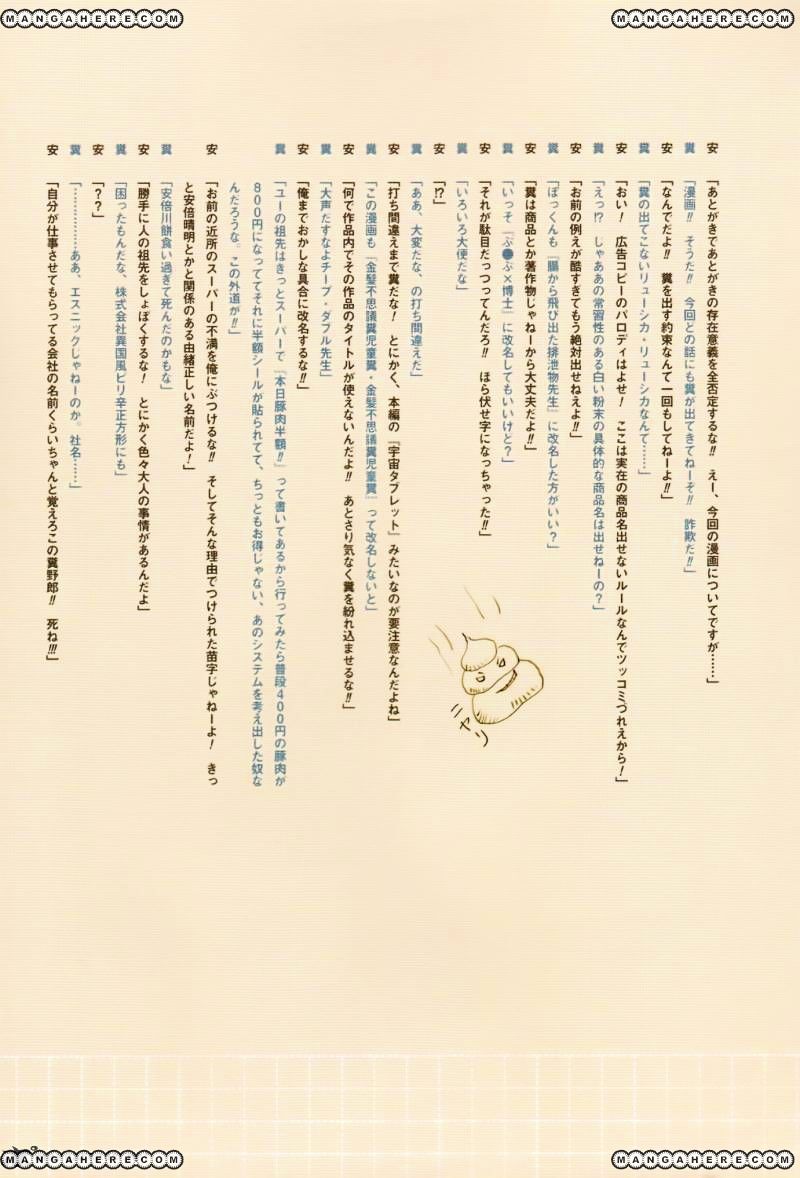 MANGAHERE.COM
MANGAHERE.COM
安 「あとがきであとがきの存在意義を全否定するな!! えー、今回の漫画についてですが……」
糞 「漫画!! そうだ!! 今回との話にも糞が出てきてねーぞ!! 詐欺だ!!」
安 「なんでだよ!! 糞を出す約束なんて一回もしてねーよ!!」
糞 「糞の出てこないリューシカ・リューシカなんて……」
安 「おい! 広告コピーのパロディはよせ! ここは実在の商品名出せないルールなんでツッコミづれえから!」
糞 「えっ!? じゃああの常習性のある白い粉末の具体的な商品名は出せねーの?」
安 「お前の例えが酷すぎてもう絶対出せねえよ!!」
糞 「ぼっくんも『腸から飛び出た排泄物先生』に改名した方がいい?」
安 「糞は商品とか著作物じゃねーから大丈夫だよ!!」
糞 「いっそ『ぶ●ぶ×博士』に改名してもいいけど?」
安 「それが駄目だっつってんだろ!! ほら伏せ字になっちゃった!!」
糞 「いろいろ大便だな」
安 「!?」
糞 「ああ、大変だな、の打ち間違えだ」
安 「打ち間違えまで糞だな! とにかく、本編の『宇宙タブレット』みたいなのが要注意なんだよね」
糞 「この漫画も『金髪不思議糞児童糞・金髪不思議糞児童糞』って改名しないと」
安 「何で作品内でその作品のタイトルが使えないんだよ!! あとさり気なく糞を紛れ込ませるな!!」
糞 「大声だすなよチープ・ダブル先生」
安 「俺までおかしな具合に改名するな!!」
糞 「ユーの祖先はきっとスーパーで『本日豚肉半額!!』って書いてあるから行ってみたら普段400円の豚肉が
800円になっててそれに半額シールが貼られてて、ちっともお得じゃない、あのシステムを考え出した奴な
んだろうな。この外道が!!」
安 「お前の近所のスーパーの不満を俺にぶつけるな!! そしてそんな理由でつけられた苗字じゃねーよ! きっ
と安倍晴明とかと関係のある由緒正しい名前だよ!」
糞 「安倍川餅食い過ぎて死んだのかもな」
安 「勝手に人の祖先をしょぼくするな! とにかく色々大人の事情があるんだよ」
糞 「困ったもんだな、株式会社異国風ピリ辛正方形にも」
安 「??」
糞 「……………ああ、エスニックじゃねーのか。社名……」
安 「自分が仕事させてもらってる会社の名前くらいちゃんと覚えろこの糞野郎!! 死ね!!!」
ニヤリ
MANGAHERE.COM
MANGAHERE.COM